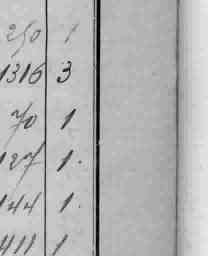 250 1
1316 3
70 1
127 1.
144 1.
411 1